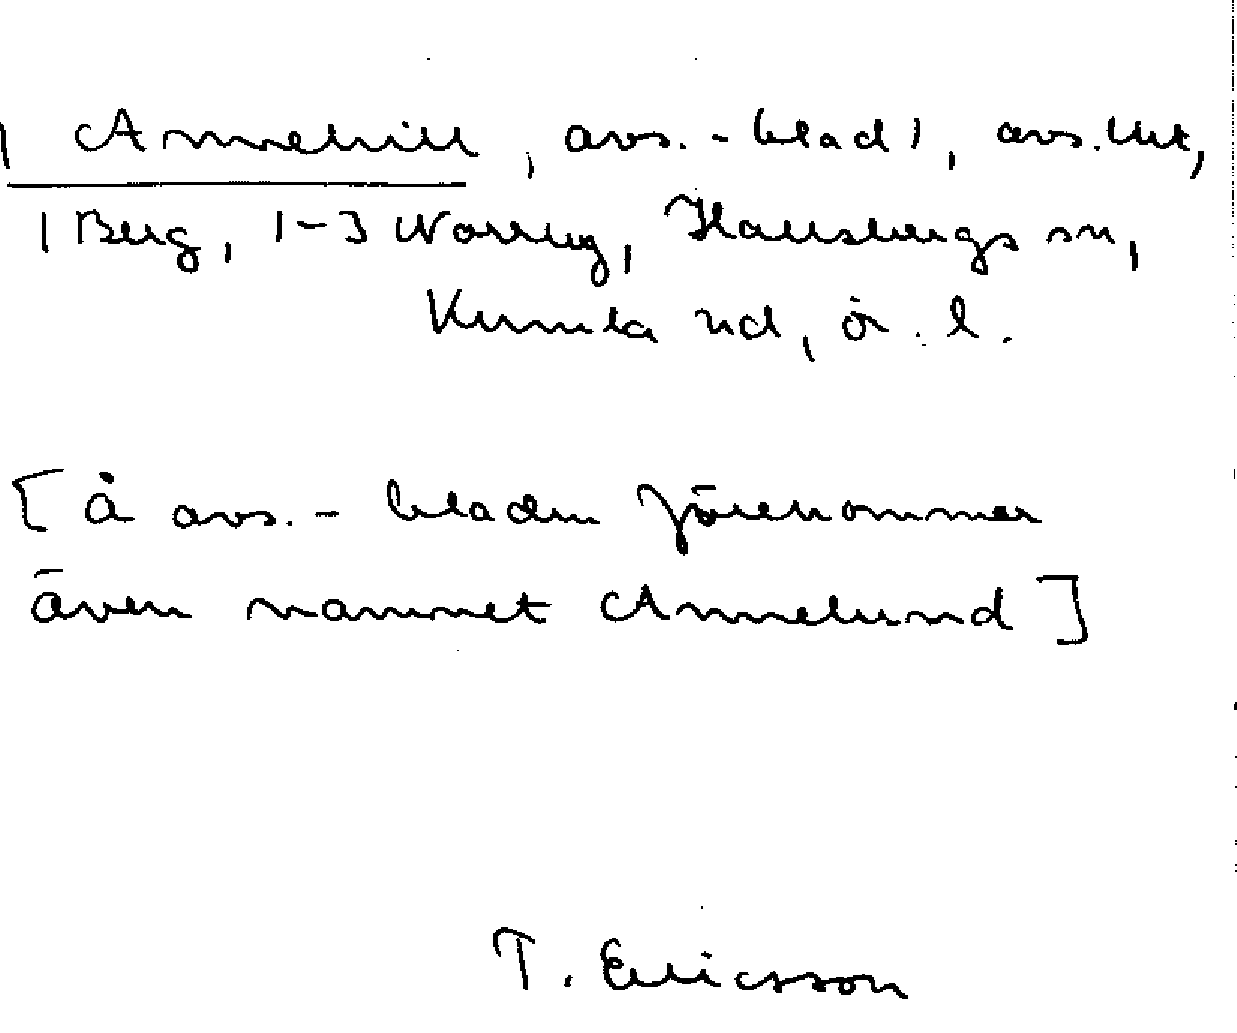 1 Annehill, avs.-blad 1, avs.lht,
1 Berg, 1-3 Norrby, Hallsbergs sn,
Kumla hd, ör. l.
[Å avs.-bladen förekommer
även namnet Annelund]
T. Ericsson